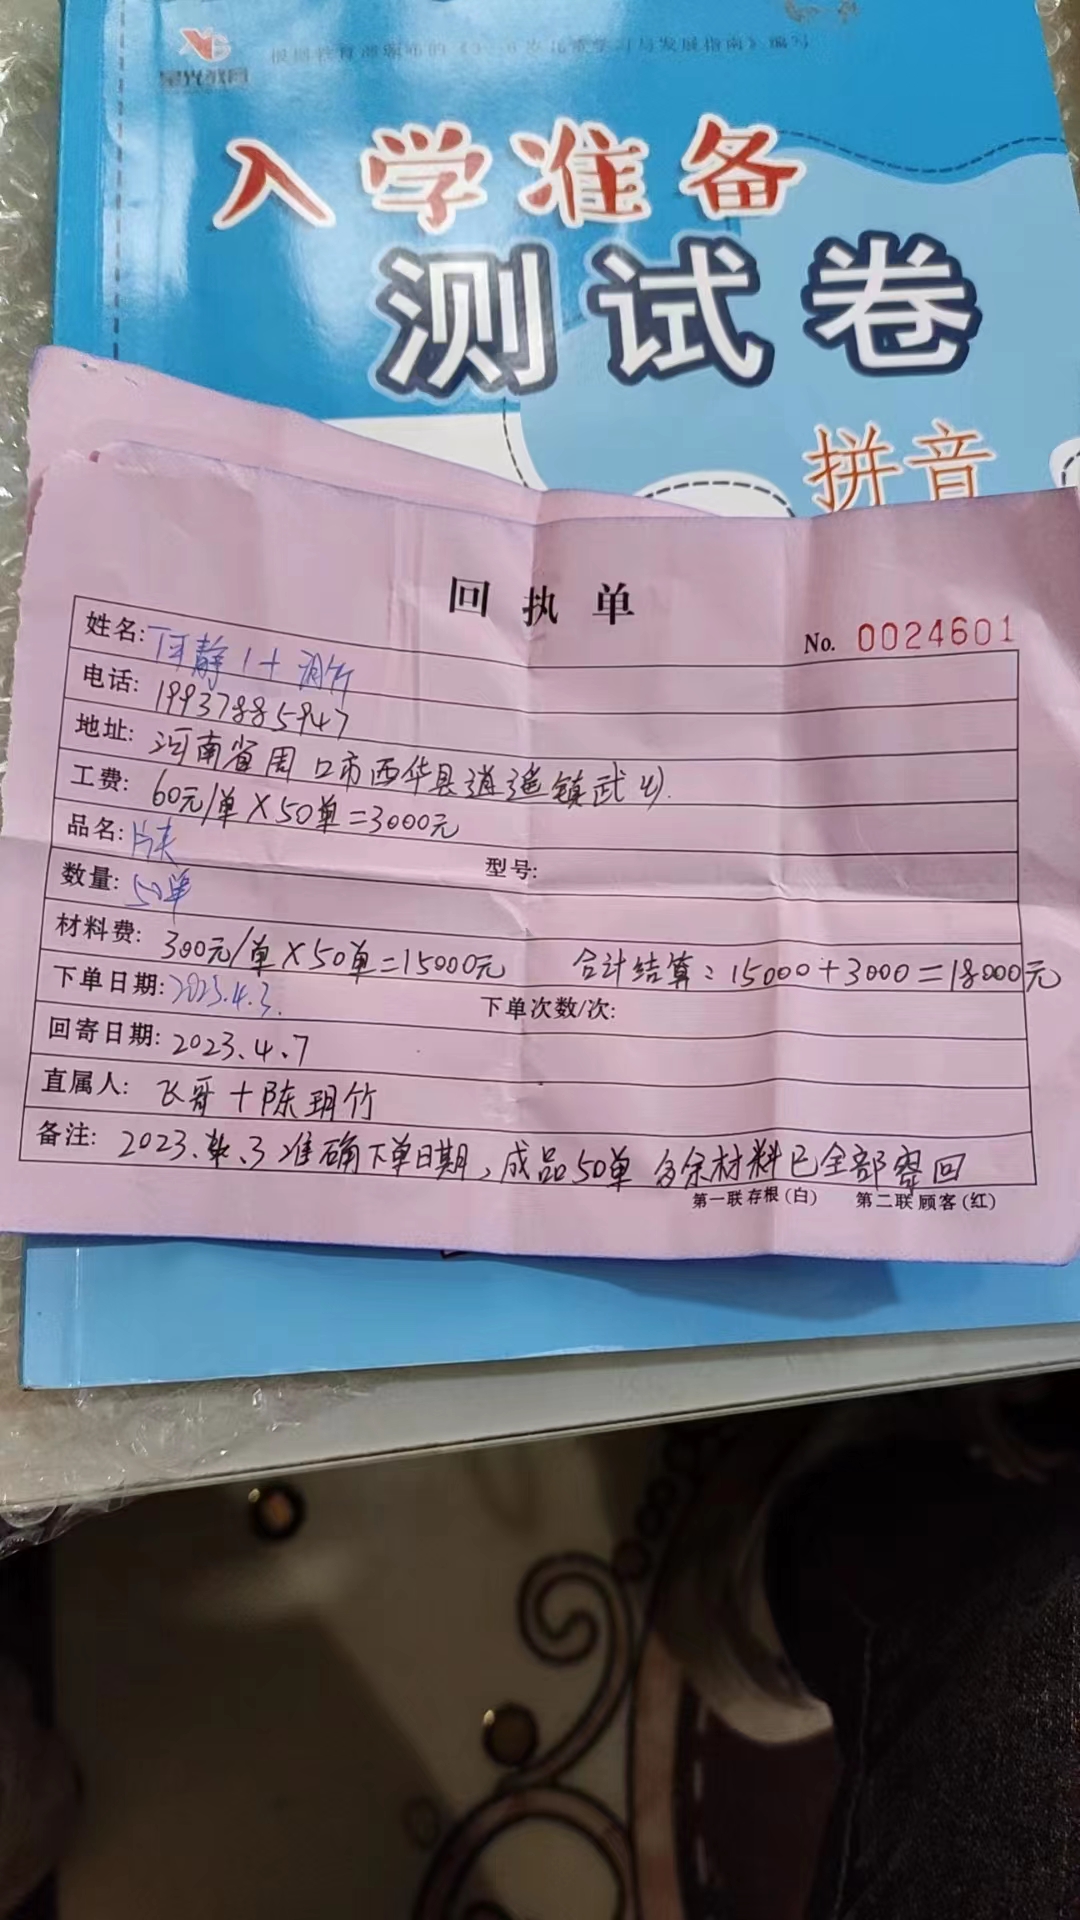 星光教育
根据教育部颁布的《3-6岁儿童学习与发展指南》编写
入学准备
测试卷
拼音
回执单
No. 0024601
姓名:
电话: 19937885947
地址: 河南省周口市西华县逍遥镇武
工费: 60元/单×50单=3000元
品名: 片夹 型号:
数量: 50单
材料费: 300元/单×50单=15000元 合计结算:15000+3000=18000元
下单日期: 2023.4.3. 下单次数/次:
回寄日期: 2023、4、7
直属人: 飞哥+陈玥竹
备注: 2023、4、3准确下单日期、成品50单 多余材料已全部寄回
第一联存根(白) 第二联顾客(红)